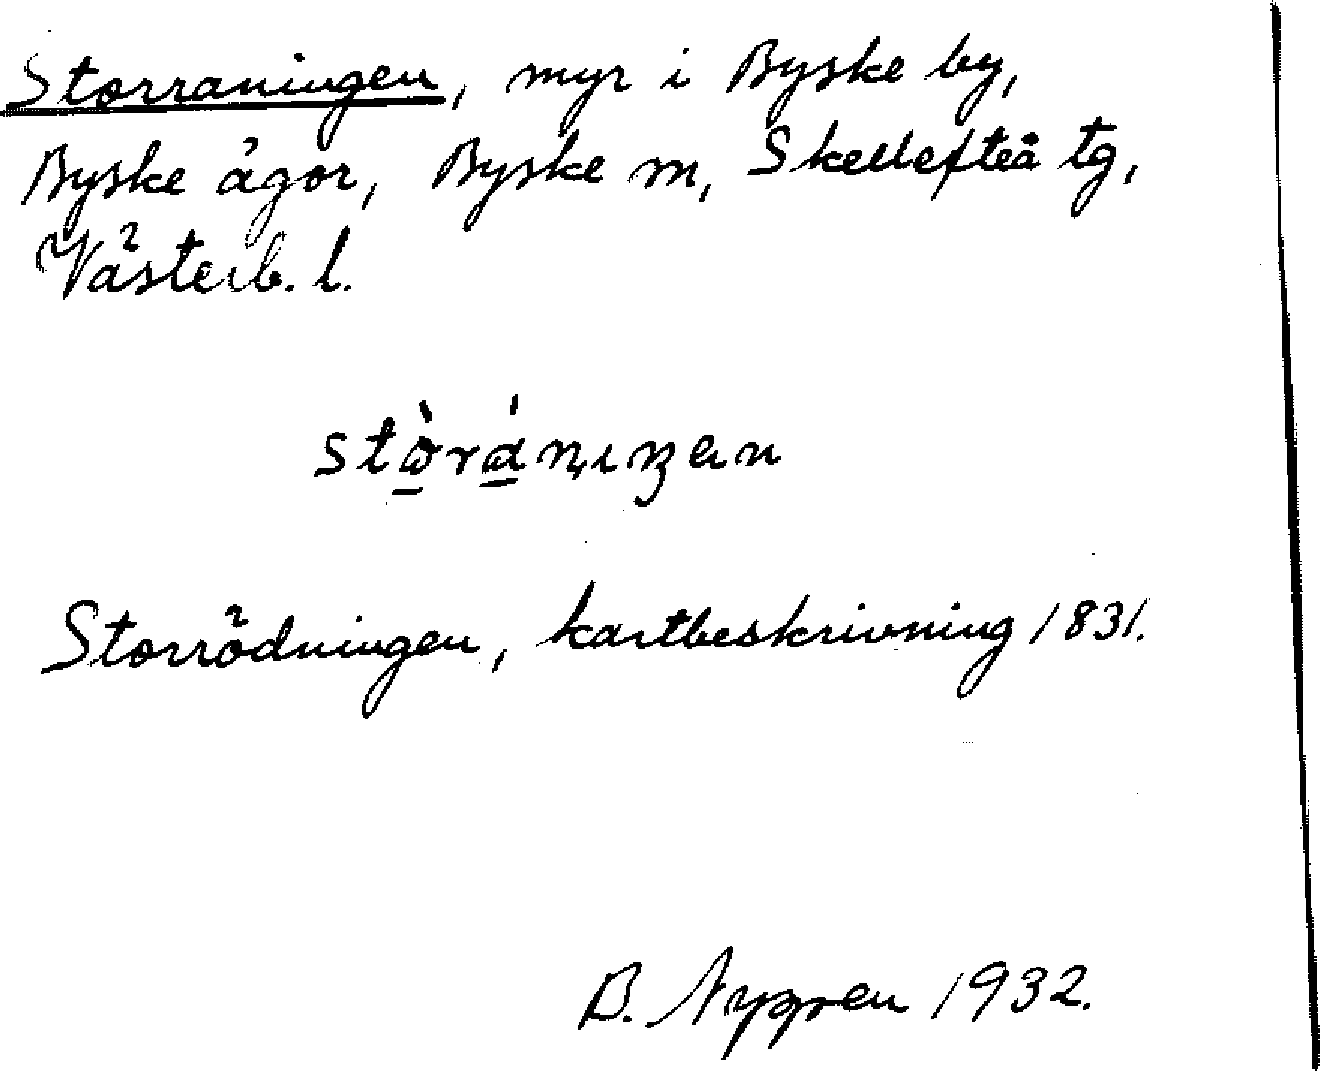 Storraningen, myr i Byske by,
Byske ägor, Byske sn, Skellefteå tg,
Västerb. l.
Storrödningen, kartbeskrivning 1831.
B. Nygren 1932.